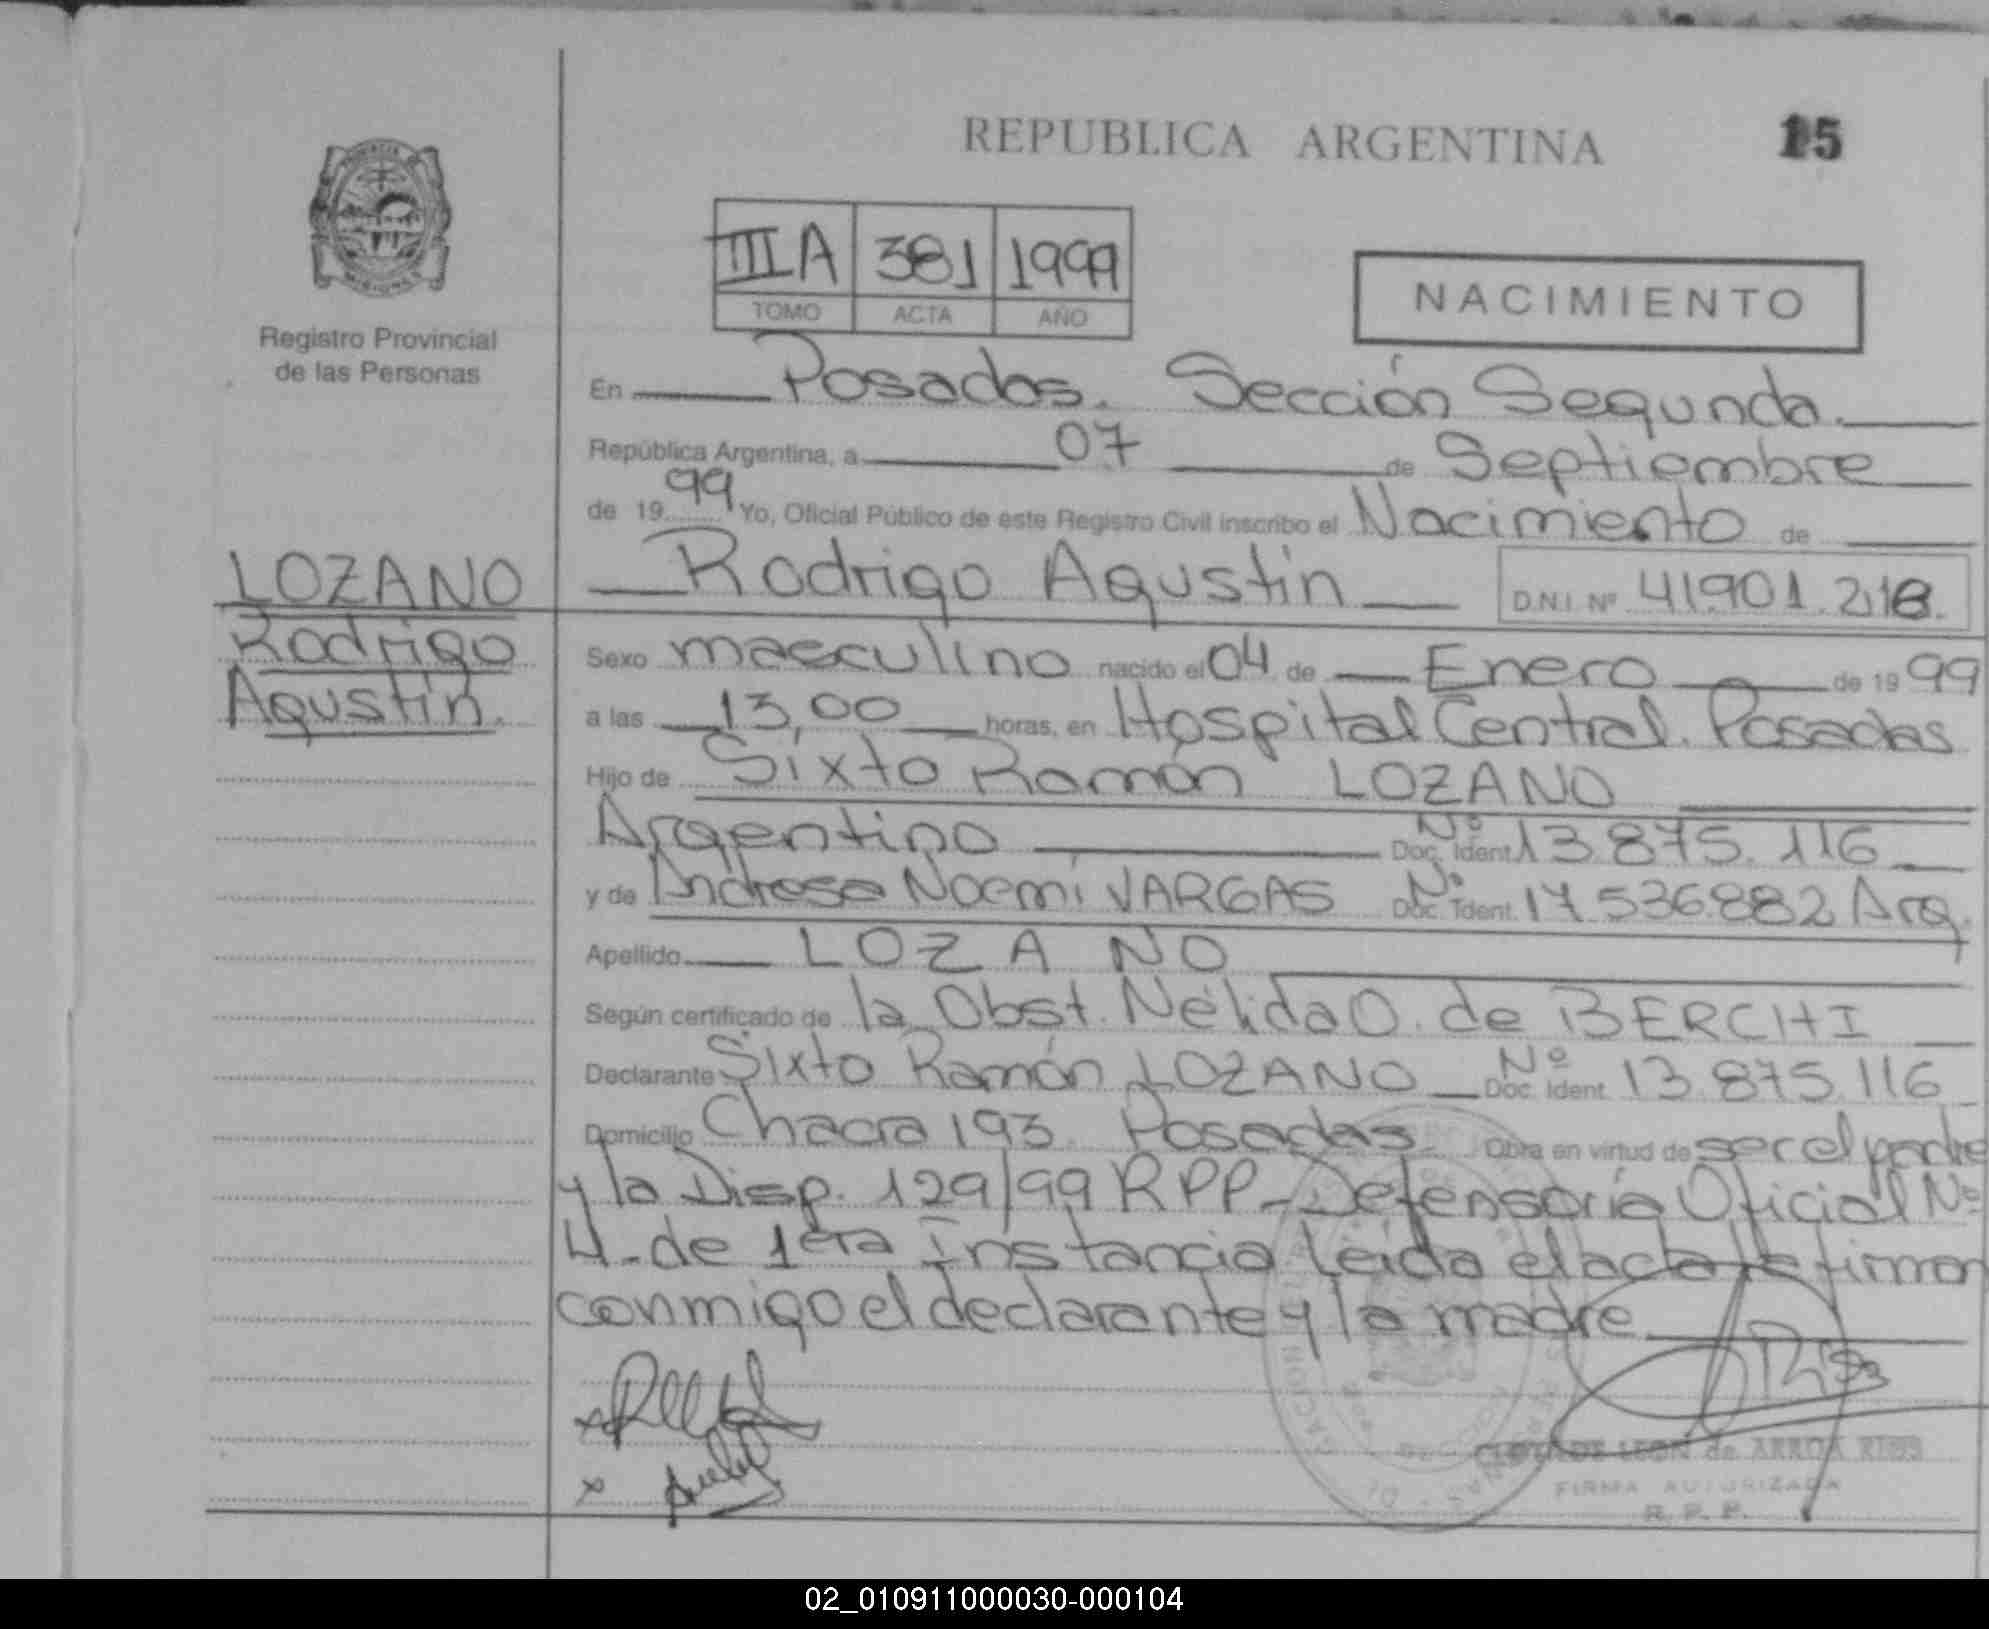 REPUBLICA ARGENTINA
15
Registro Provincial
de las Personas
III A 381 1999
TOMO ACTA AÑO
NACIMIENTO
En Posadas. Sección Segunda.
República Argentina, a 07 de Septiembre
de 1999 Yo, Oficial Público de este Registro Civil inscribo el Nacimiento de
Rodrigo Agustín D.N.I. Nº 41.901.218.
LOZANO
Rodrigo
Agustín.
Sexo masculino nacido el 04 de Enero de 1999
a las 13,00 horas, en Hospital Central. Posadas
Hijo de Sixto Ramón LOZANO
Argentino Nº Doc. Ident. 13.875.116
y de Andresa Noemí VARGAS Nº Doc. Ident. 17.536.882 Arg.
Apellido LOZANO
Según certificado de la Obst. Nélida O. de BERCHI
Declarante Sixto Ramón LOZANO Nº Doc. Ident. 13.875.116
Domicilio Chacra 193. Posadas Obra en virtud de ser el padre
y la Disp. 129/99 RPP - Defensoría Oficial Nº
4 - de 1era Instancia leída el acta la firman
conmigo el declarante y la madre
FIRMA AUTORIZADA
R. P. P.
02_010911000030-000104